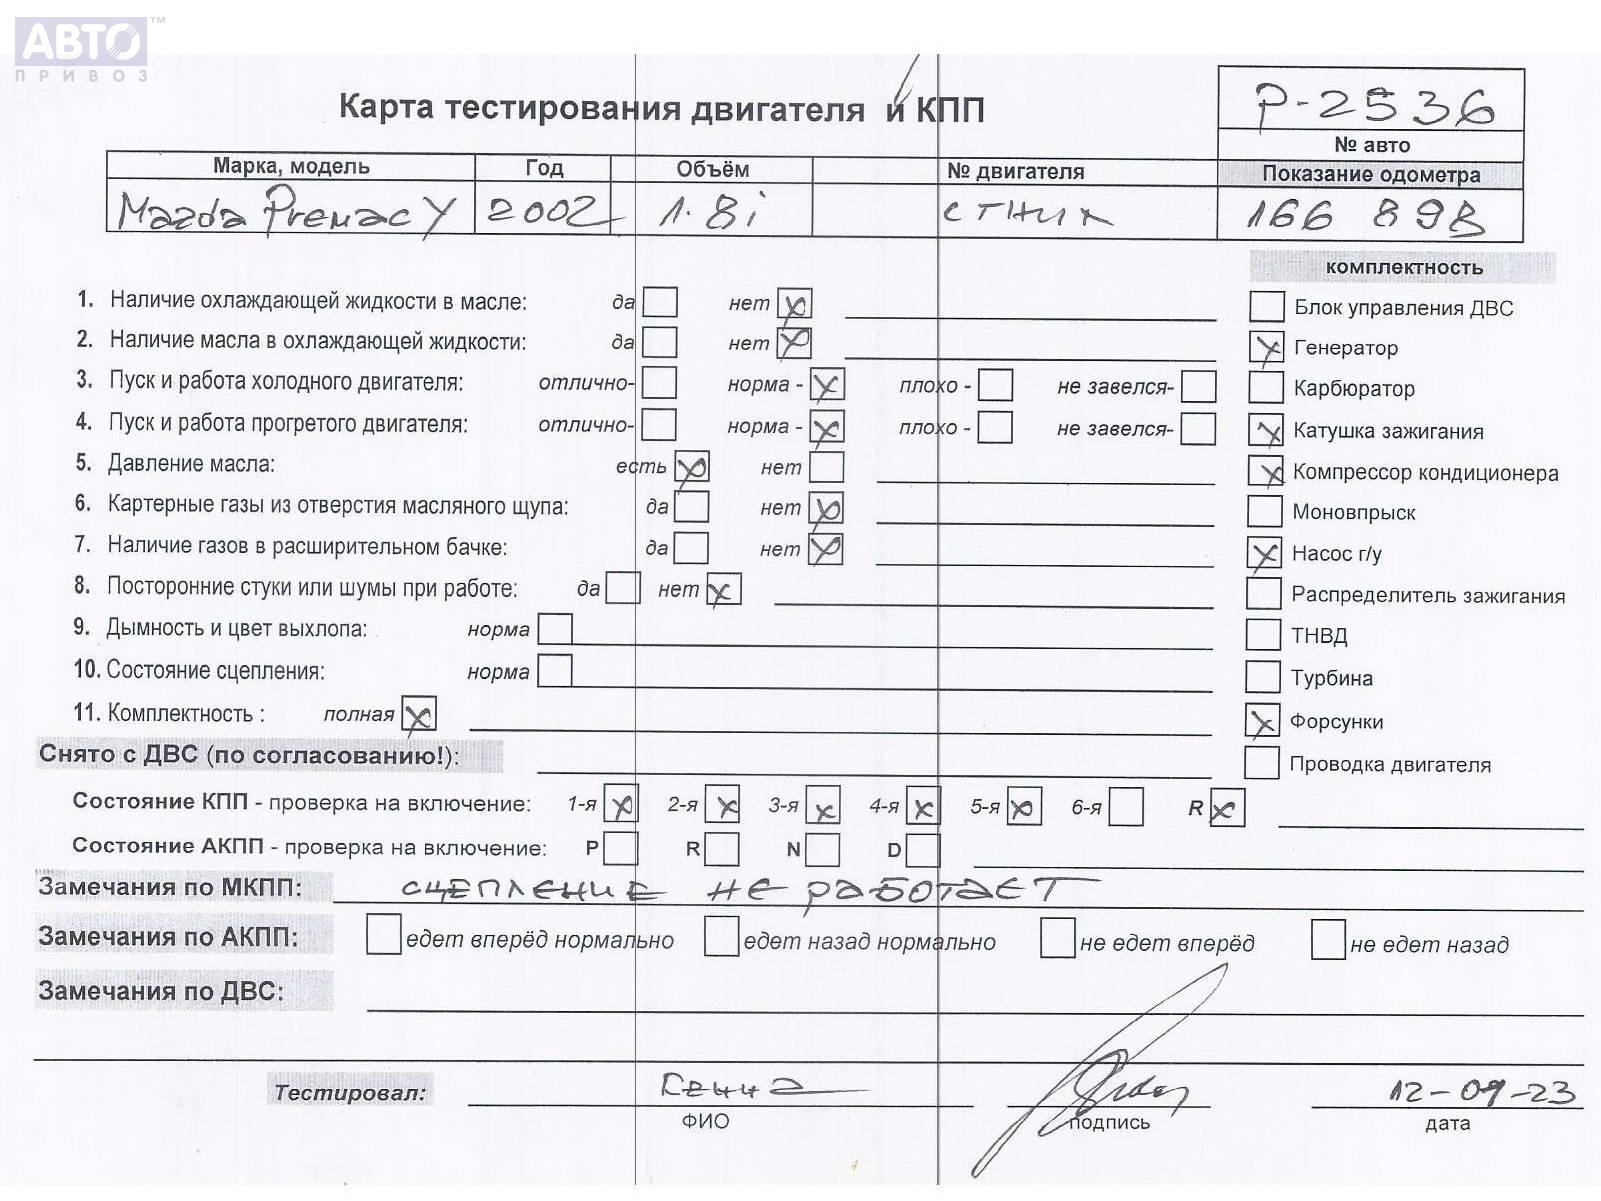 АВТО™
ПРИВОЗ
Карта тестирования двигателя и КПП
Р-2536
№ авто
Марка, модель Год Объём № двигателя Показание одометра
Mazda Premacy 2002 1.8i 166 898
комплектность
1. Наличие охлаждающей жидкости в масле: да нет x
Блок управления ДВС
2. Наличие масла в охлаждающей жидкости: да нет x
x Генератор
3. Пуск и работа холодного двигателя: отлично- норма - x плохо - не завелся-
Карбюратор
4. Пуск и работа прогретого двигателя: отлично- норма - x плохо - не завелся-
x Катушка зажигания
5. Давление масла: есть x нет
x Компрессор кондиционера
6. Картерные газы из отверстия масляного щупа: да нет x
Моновпрыск
7. Наличие газов в расширительном бачке: да нет x
x Насос г/у
8. Посторонние стуки или шумы при работе: да нет x
Распределитель зажигания
9. Дымность и цвет выхлопа: норма
ТНВД
10. Состояние сцепления: норма
Турбина
11. Комплектность : полная x
x Форсунки
Снято с ДВС (по согласованию!):
Проводка двигателя
Состояние КПП - проверка на включение: 1-я x 2-я x 3-я x 4-я x 5-я x 6-я R x
Состояние АКПП - проверка на включение: P R N D
Замечания по МКПП: сцепление не работает
Замечания по АКПП: едет вперёд нормально едет назад нормально не едет вперёд не едет назад
Замечания по ДВС:
Тестировал: 12-09-23
ФИО подпись дата